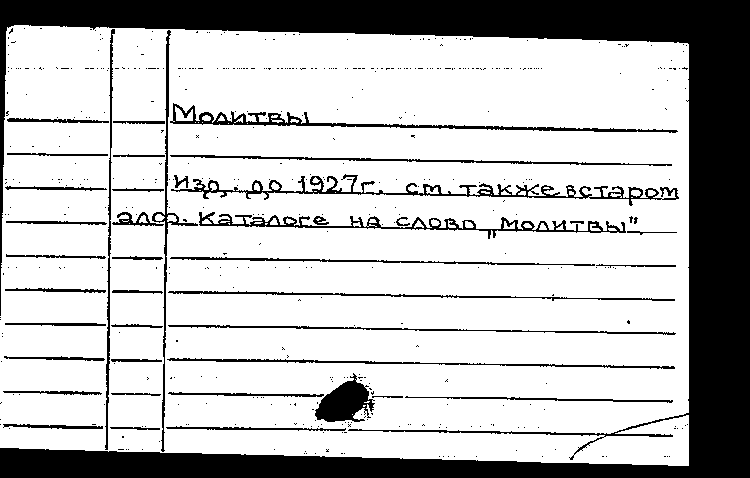 Молитвы
Изд. до 1927г. см. также в старом
алф. каталоге на слово „молитвы"